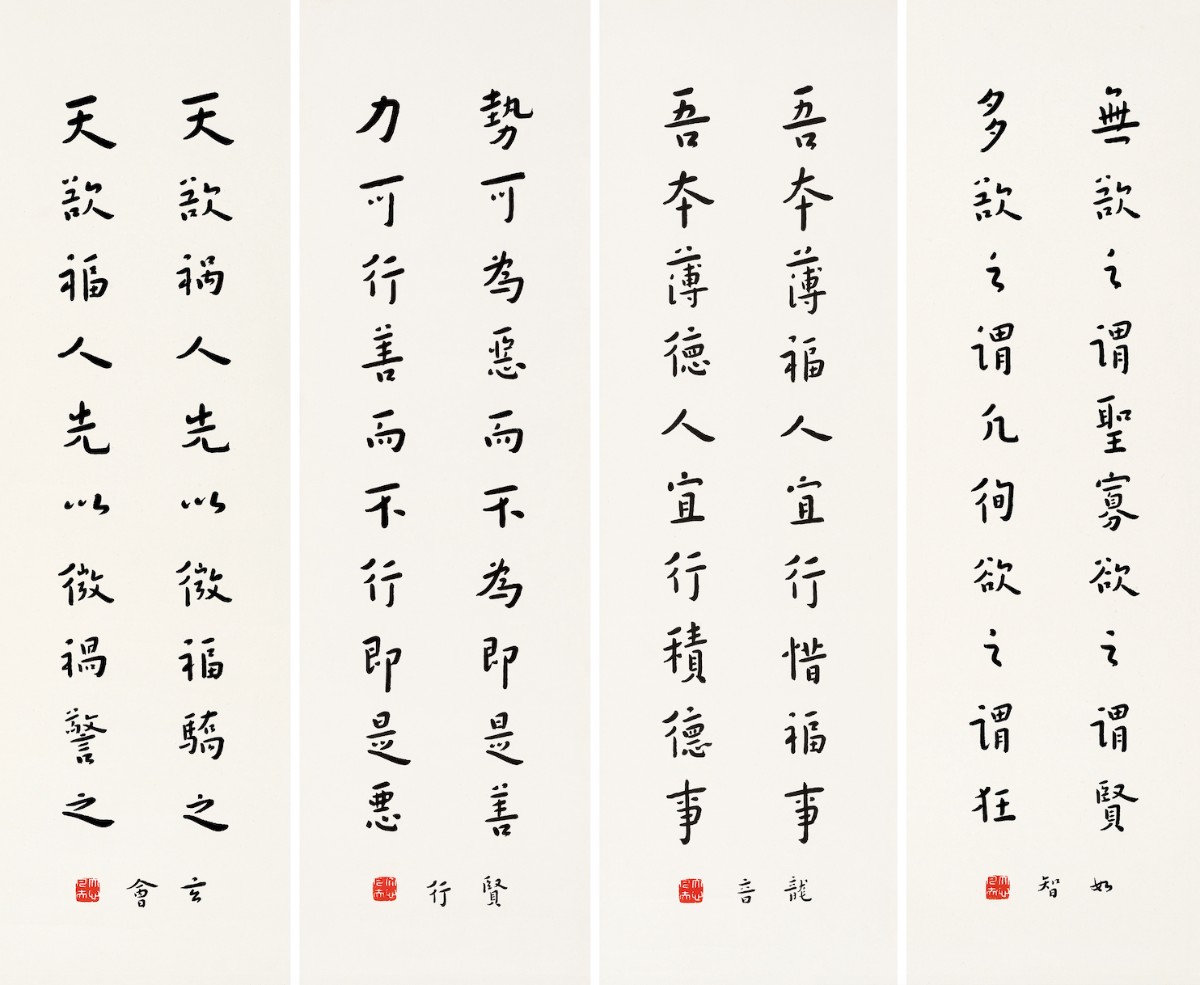 無欲之謂聖寡欲之謂賢
多欲之謂凡徇欲之謂狂
如智
吾本薄福人宜行惜福事
吾本薄德人宜行積德事
龍音
勢可為惡而不為即是善
力可行善而不行即是悪
賢行
天欲禍人先以微福驕之
天欲福人先以微禍警之
玄會